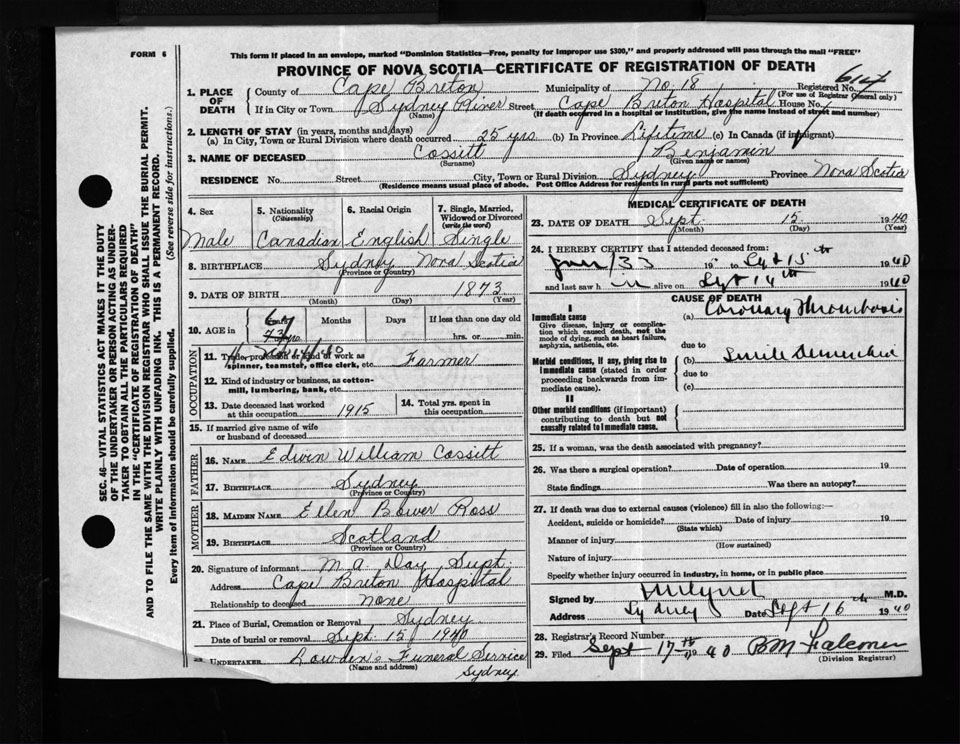 FORM 6
This form if placed in an envelope, marked "Dominion Statistics—Free, penalty for improper use $300," and properly addressed will pass through the mail "FREE"
PROVINCE OF NOVA SCOTIA—CERTIFICATE OF REGISTRATION OF DEATH
SEC. 46—VITAL STATISTICS ACT MAKES IT THE DUTY
OF THE UNDERTAKER OR PERSON ACTING AS UNDER-
TAKER TO OBTAIN ALL THE PARTICULARS REQUIRED
IN THE "CERTIFICATE OF REGISTRATION OF DEATH"
AND TO FILE THE SAME WITH THE DIVISION REGISTRAR WHO SHALL ISSUE THE BURIAL PERMIT.
WRITE PLAINLY WITH UNFADING INK. THIS IS A PERMANENT RECORD.
Every item of information should be carefully supplied. (See reverse side for instructions.)
1. PLACE OF DEATH
County of Cape Breton Municipality of No. 18 Registered No. 614
(For use of Registrar General only)
If in City or Town Sydney River Street Cape Breton Hospital House No.
(Name) (If death occurred in a hospital or institution, give the name instead of street and number)
2. LENGTH OF STAY (in years, months and days)
(a) In City, Town or Rural Division where death occurred 25 yrs. (b) In Province Lifetime (c) In Canada (if immigrant)
3. NAME OF DECEASED Cossitt Benjamin
(Surname) (Given name or names)
RESIDENCE No. Street City, Town or Rural Division Sydney Province Nova Scotia
(Residence means usual place of abode. Post Office Address for residents in rural parts not sufficient)
4. Sex Male
5. Nationality (Citizenship) Canadian
6. Racial Origin English
7. Single, Married, Widowed or Divorced (write the word) Single
8. BIRTHPLACE Sydney Nova Scotia
(Province or Country)
9. DATE OF BIRTH 1873
(Month) (Day) (Year)
10. AGE in 67 Months Days If less than one day old
hrs. or min.
OCCUPATION
11. Trade, profession or kind of work as
spinner, teamster, office clerk, etc. Farmer
12. Kind of industry or business, as cotton-
mill, lumbering, bank, etc.
13. Date deceased last worked
at this occupation 1915
14. Total yrs. spent in
this occupation
15. If married give name of wife
or husband of deceased
FATHER
16. NAME Edwin William Cossitt
17. BIRTHPLACE Sydney
(Province or Country)
MOTHER
18. MAIDEN NAME Ellen Bower Ross
19. BIRTHPLACE Scotland
(Province or Country)
20. Signature of informant M A Day, Supt.
Address Cape Breton Hospital
Relationship to deceased none
21. Place of Burial, Cremation or Removal Sydney
Date of burial or removal Sept. 15 1940
22. UNDERTAKER Lowden's Funeral Service
(Name and address) Sydney
MEDICAL CERTIFICATE OF DEATH
23. DATE OF DEATH Sept. 15 1940
(Month) (Day) (Year)
24. I HEREBY CERTIFY that I attended deceased from:
Jan/33 19 to Spt 15th 1940
and last saw him alive on Spt 14th 1940
CAUSE OF DEATH
I
Immediate cause
Give disease, injury or complica-
tion which caused death, not the
mode of dying, such as heart failure,
asphyxia, asthenia, etc.
(a) Coronary Thrombosis
due to
Morbid conditions, if any, giving rise to
immediate cause (stated in order
proceeding backwards from im-
mediate cause).
(b) Senile Dementia
due to
(c)
II
Other morbid conditions (if important)
contributing to death but not
causally related to immediate cause.
25. If a woman, was the death associated with pregnancy?
26. Was there a surgical operation? Date of operation 19
State findings Was there an autopsy?
27. If death was due to external causes (violence) fill in also the following:—
Accident, suicide or homicide? Date of injury 19
(State which)
Manner of injury
(How sustained)
Nature of injury
Specify whether injury occurred in industry, in home, or in public place
Signed by M.D.
Address Sydney Date Sept 16th 1940
28. Registrar's Record Number
29. Filed Sept 17th 1940 BM Falconer
(Division Registrar)